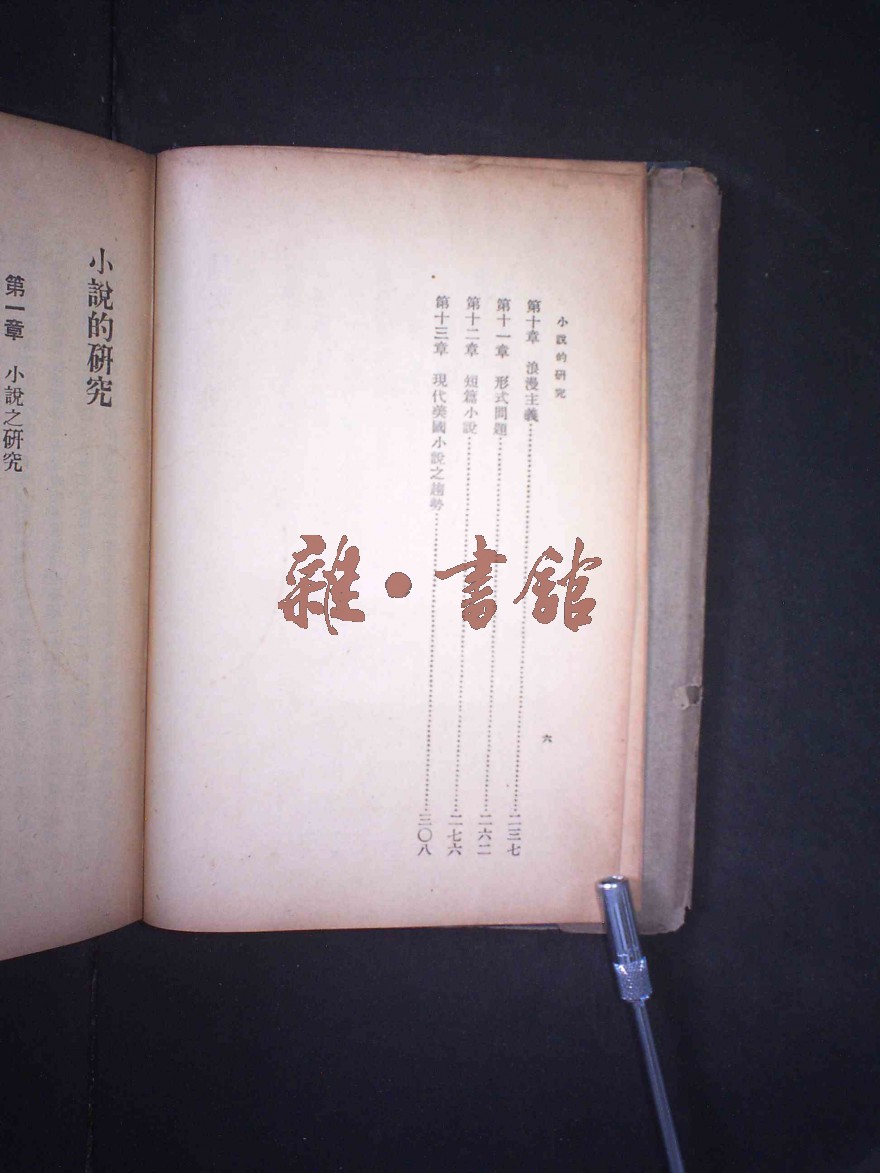 小說的研究
第十章　浪漫主義……二三七
第十一章　形式問題……二六二
第十二章　短篇小說……二七六
第十三章　現代美國小說之趨勢……三〇八
六
小說的研究
第一章　小說之研究
雜・書館